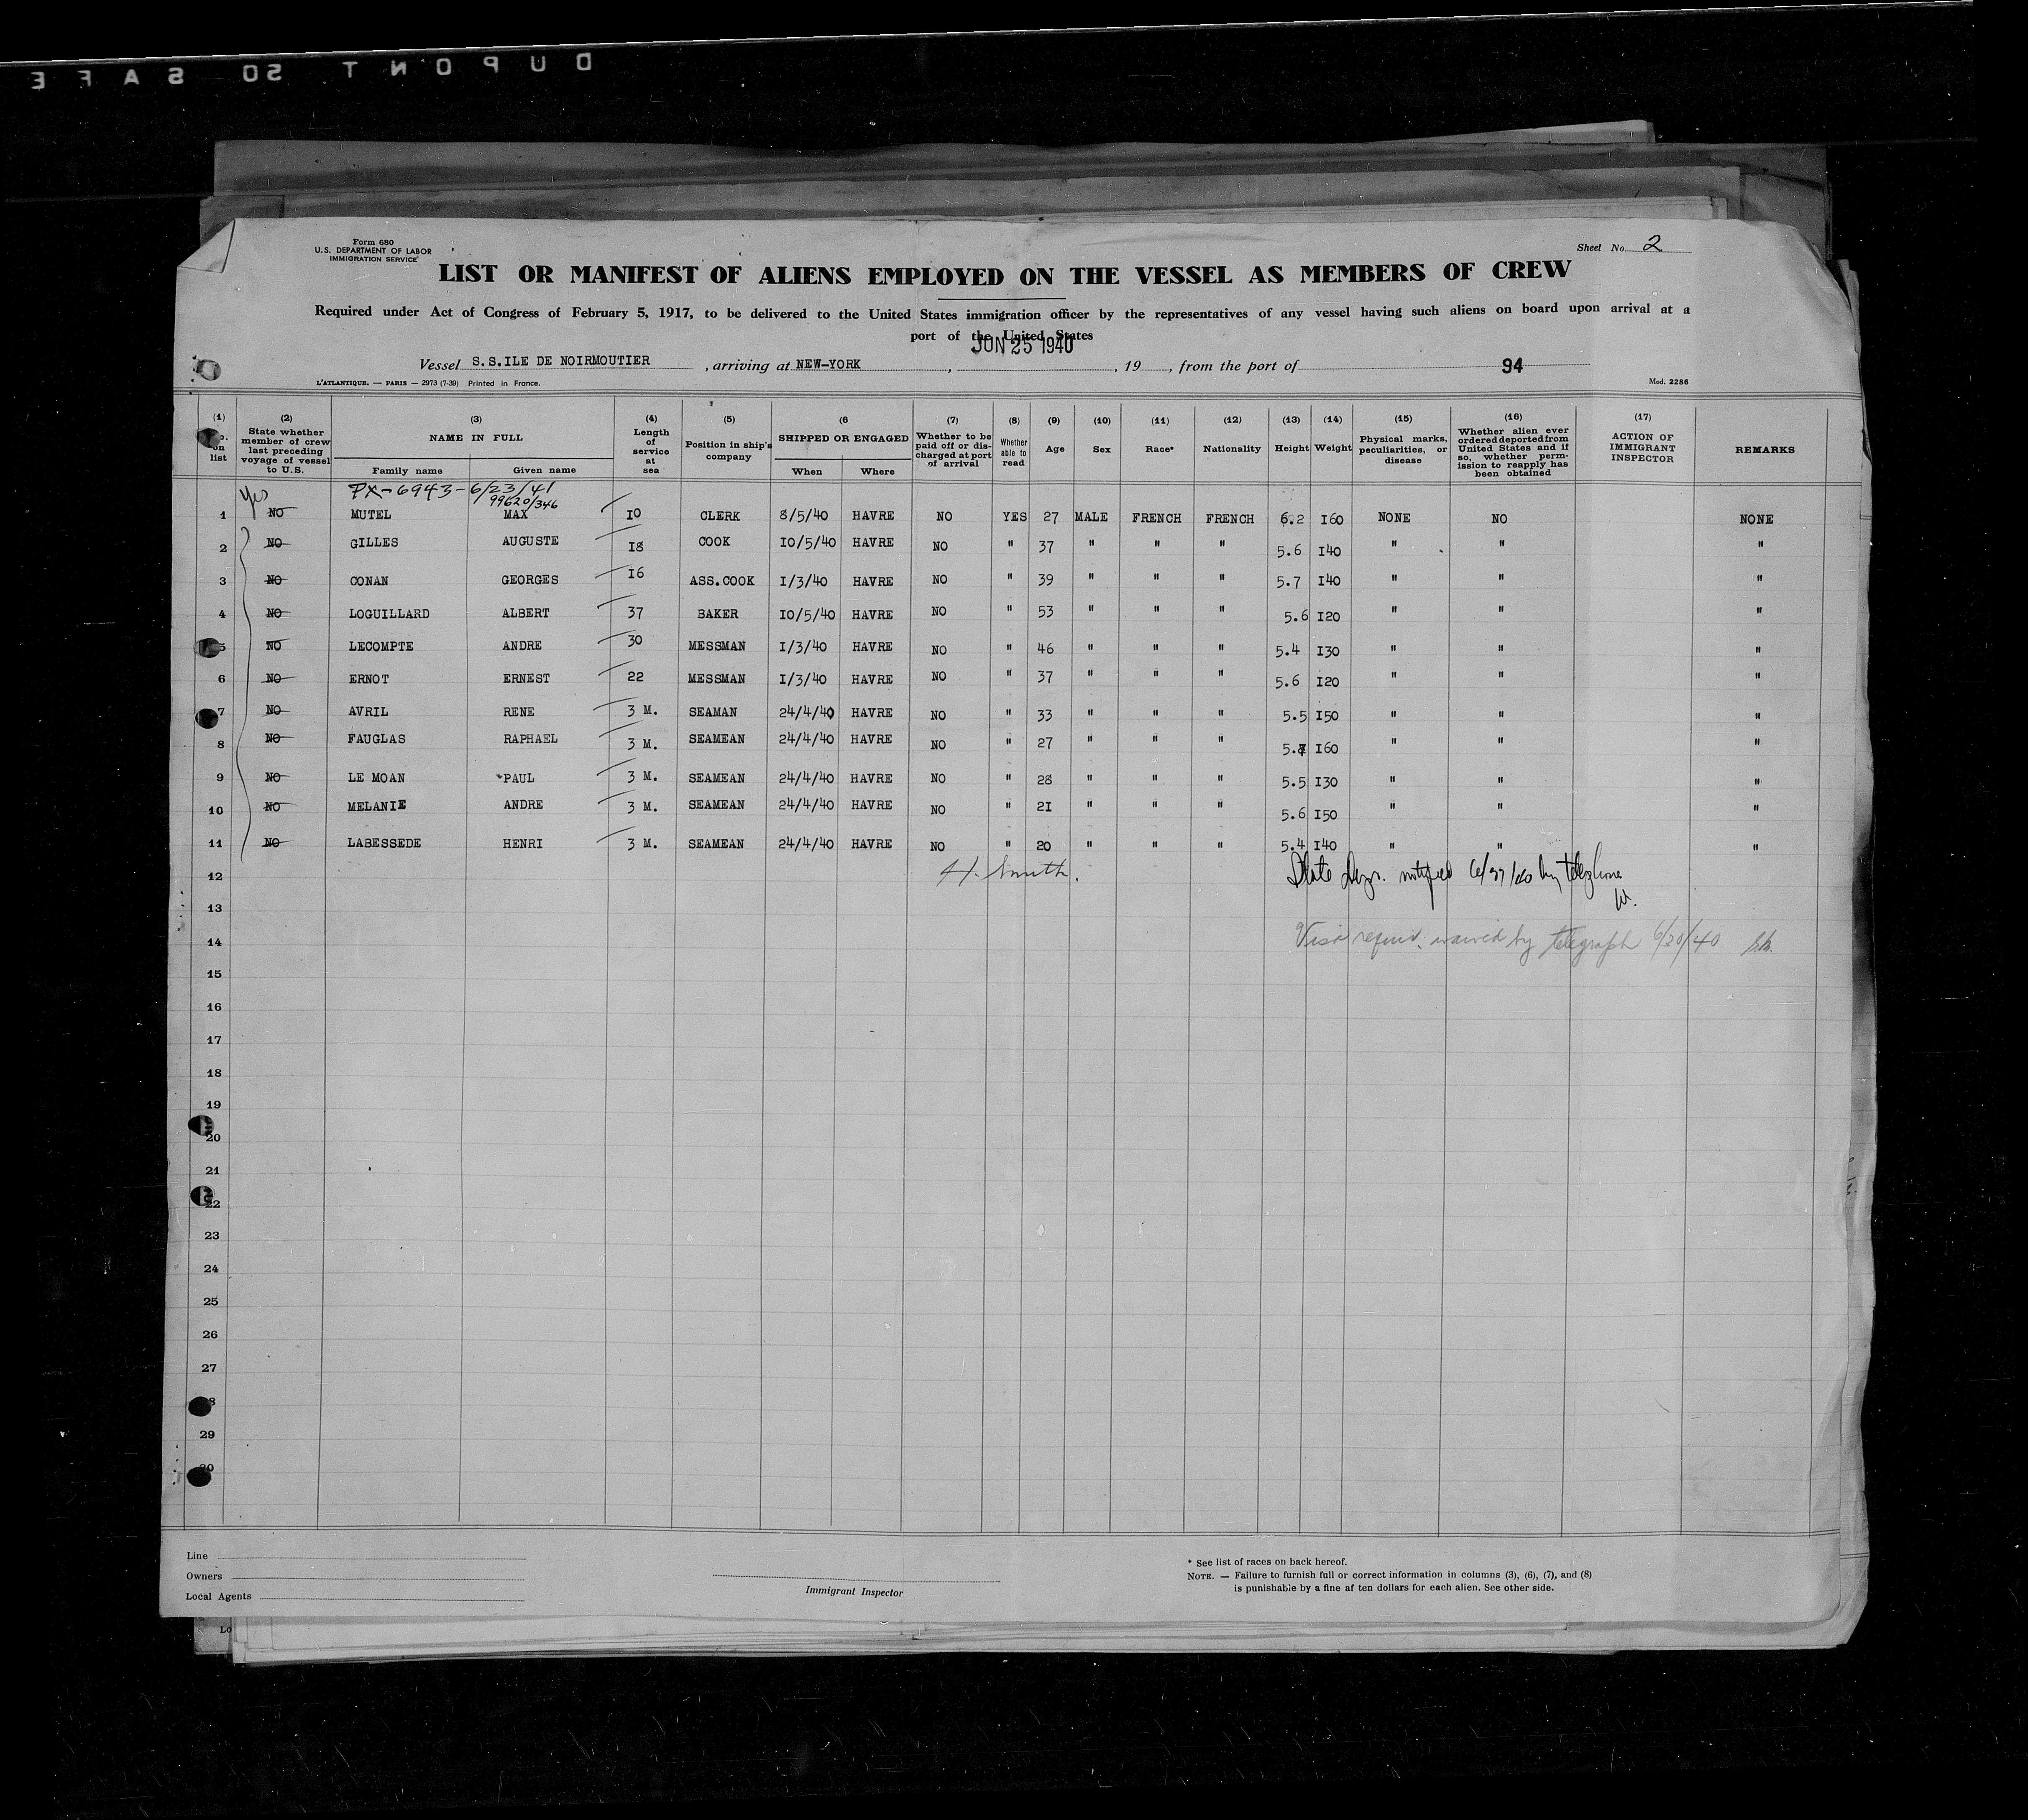 DUPONT SO SAFE
Form 680
U.S. DEPARTMENT OF LABOR
IMMIGRATION SERVICE
Sheet No. 2
LIST OR MANIFEST OF ALIENS EMPLOYED ON THE VESSEL AS MEMBERS OF CREW
Required under Act of Congress of February 5, 1917, to be delivered to the United States immigration officer by the representatives of any vessel having such aliens on board upon arrival at a
port of the United States
JUN 25 1940
Vessel S.S.ILE DE NOIRMOUTIER , arriving at NEW-YORK , , 19 , from the port of 94
L'ATLANTIQUE. — PARIS — 2973 (7-39) Printed in France.
Mod. 2286
(1) (2) (3) (4) (5) (6 (7) (8) (9) (10) (11) (12) (13) (14) (15) (16) (17)
on list
State whether member of crew last preceding voyage of vessel to U.S.
NAME IN FULL
Family name Given name
Length of service at sea
Position in ship's company
SHIPPED OR ENGAGED
When Where
Whether to be paid off or discharged at port of arrival
Whether able to read
Age Sex Race* Nationality Height Weight
Physical marks, peculiarities, or disease
Whether alien ever ordered deported from United States and if so, whether permission to reapply has been obtained
ACTION OF IMMIGRANT INSPECTOR
REMARKS
Yes PX-6943-6/23/41
99620/346
1 NO MUTEL MAX I0 CLERK 8/5/40 HAVRE NO YES 27 MALE FRENCH FRENCH 6.2 I60 NONE NO NONE
2 NO GILLES AUGUSTE I8 COOK I0/5/40 HAVRE NO " 37 " " " 5.6 I40 " " "
3 NO CONAN GEORGES I6 ASS.COOK I/3/40 HAVRE NO " 39 " " " 5.7 I40 " " "
4 NO LOGUILLARD ALBERT 37 BAKER I0/5/40 HAVRE NO " 53 " " " 5.6 I20 " " "
5 NO LECOMPTE ANDRE 30 MESSMAN I/3/40 HAVRE NO " 46 " " " 5.4 I30 " " "
6 NO ERNOT ERNEST 22 MESSMAN I/3/40 HAVRE NO " 37 " " " 5.6 I20 " " "
7 NO AVRIL RENE 3 M. SEAMAN 24/4/40 HAVRE NO " 33 " " " 5.5 I50 " " "
8 NO FAUGLAS RAPHAEL 3 M. SEAMEAN 24/4/40 HAVRE NO " 27 " " " I60 " " "
9 NO LE MOAN PAUL 3 M. SEAMEAN 24/4/40 HAVRE NO " 28 " " " 5.5 I30 " " "
10 NO MELANIE ANDRE 3 M. SEAMEAN 24/4/40 HAVRE NO " 2I " " " 5.6 I50 " " "
11 NO LABESSEDE HENRI 3 M. SEAMEAN 24/4/40 HAVRE NO " 20 " " " 5.4 I40 " " "
12 H. Smith. State notified by telephone
13
14 Visa requir. waived by telegraph 6/20/40
15
16
17
18
19
20
21
22
23
24
25
26
27
29
Line
Owners
Local Agents
Immigrant Inspector
* See list of races on back hereof.
NOTE. — Failure to furnish full or correct information in columns (3), (6), (7), and (8)
is punishable by a fine af ten dollars for each alien. See other side.
Lo